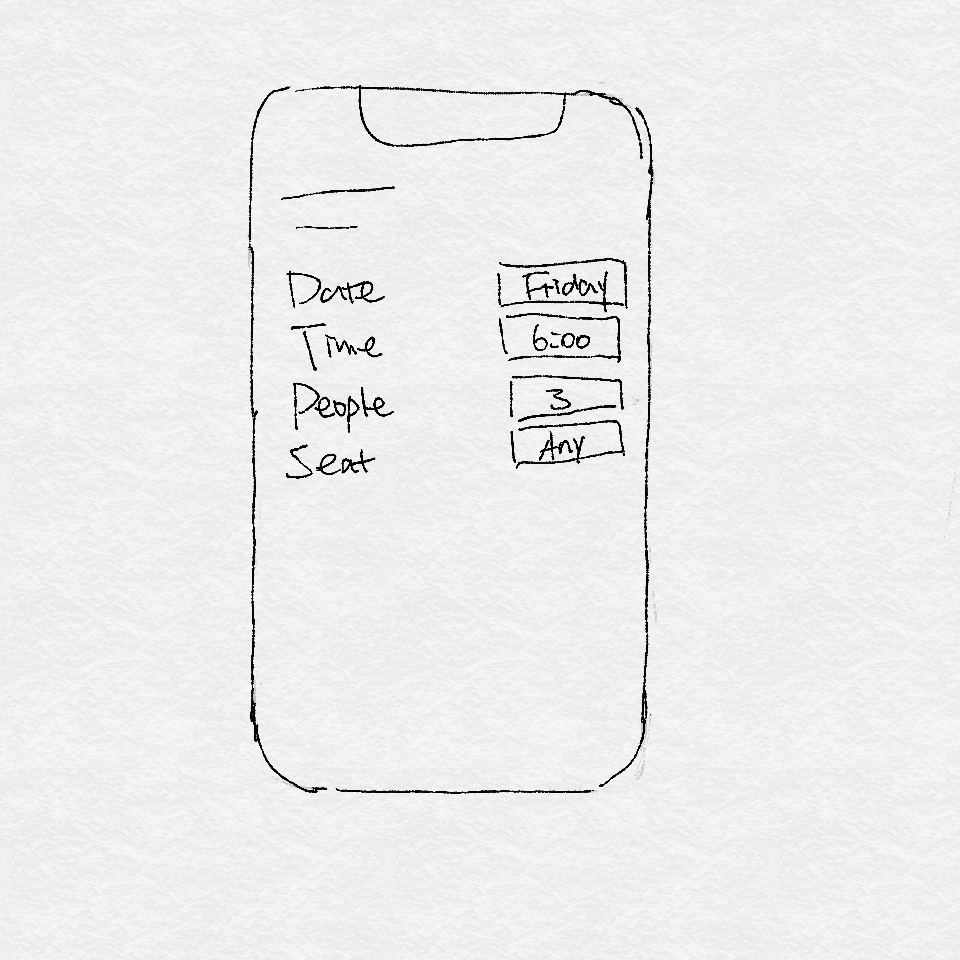 Date Friday
Time 6:00
People 3
Seat Any